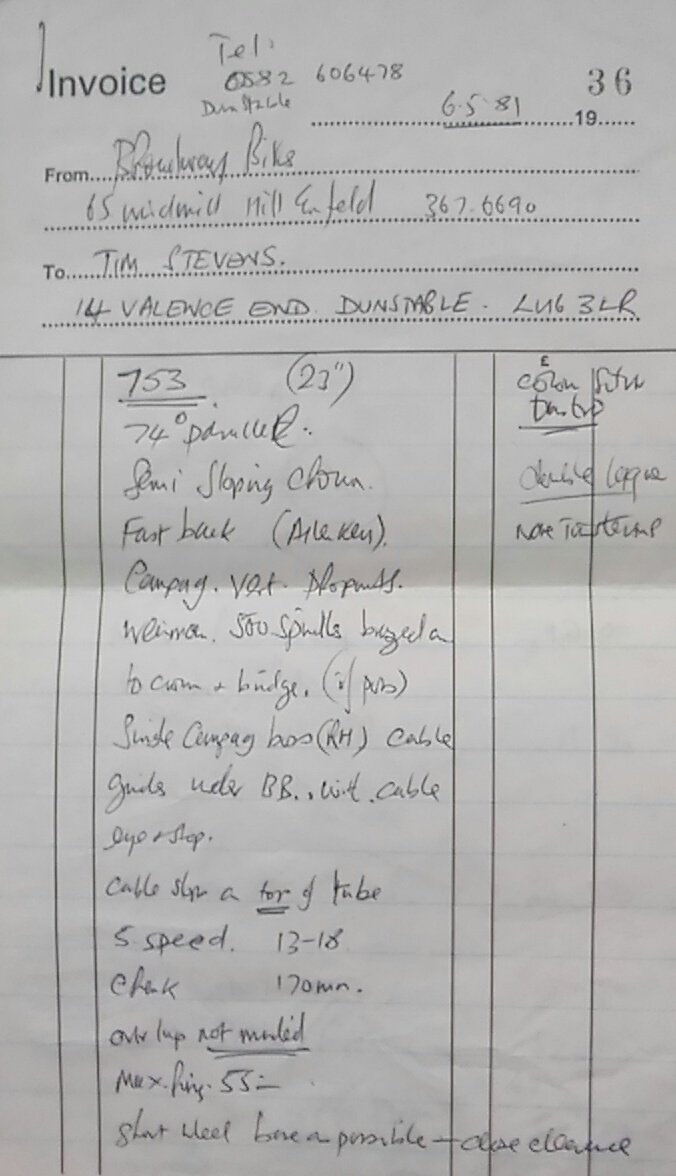 Tel:
Invoice 0582 606478 36
Dunstable
6.5.81 19
From Broadway Bikes
65 windmill Hill Enfield 367.6690
To TIM STEVENS.
14 VALENCE END. DUNSTABLE. LU6 3LR
753 (23")
£
colour Silver
74° parallel.
Semi Sloping Crown.
double
Fast back (Allen key).
Campag. vert. Dropouts.
Weinman. 500 Spindles brazed on
to crown + bridge. (if poss)
Single Campag boss (RH) cable
guides under BB., with cable
eye + stop.
cable stop on top of tube
5 speed. 13-18
170mm.
overlap not minded
Max. Ring. 55
Short wheel base as possible - close clearance